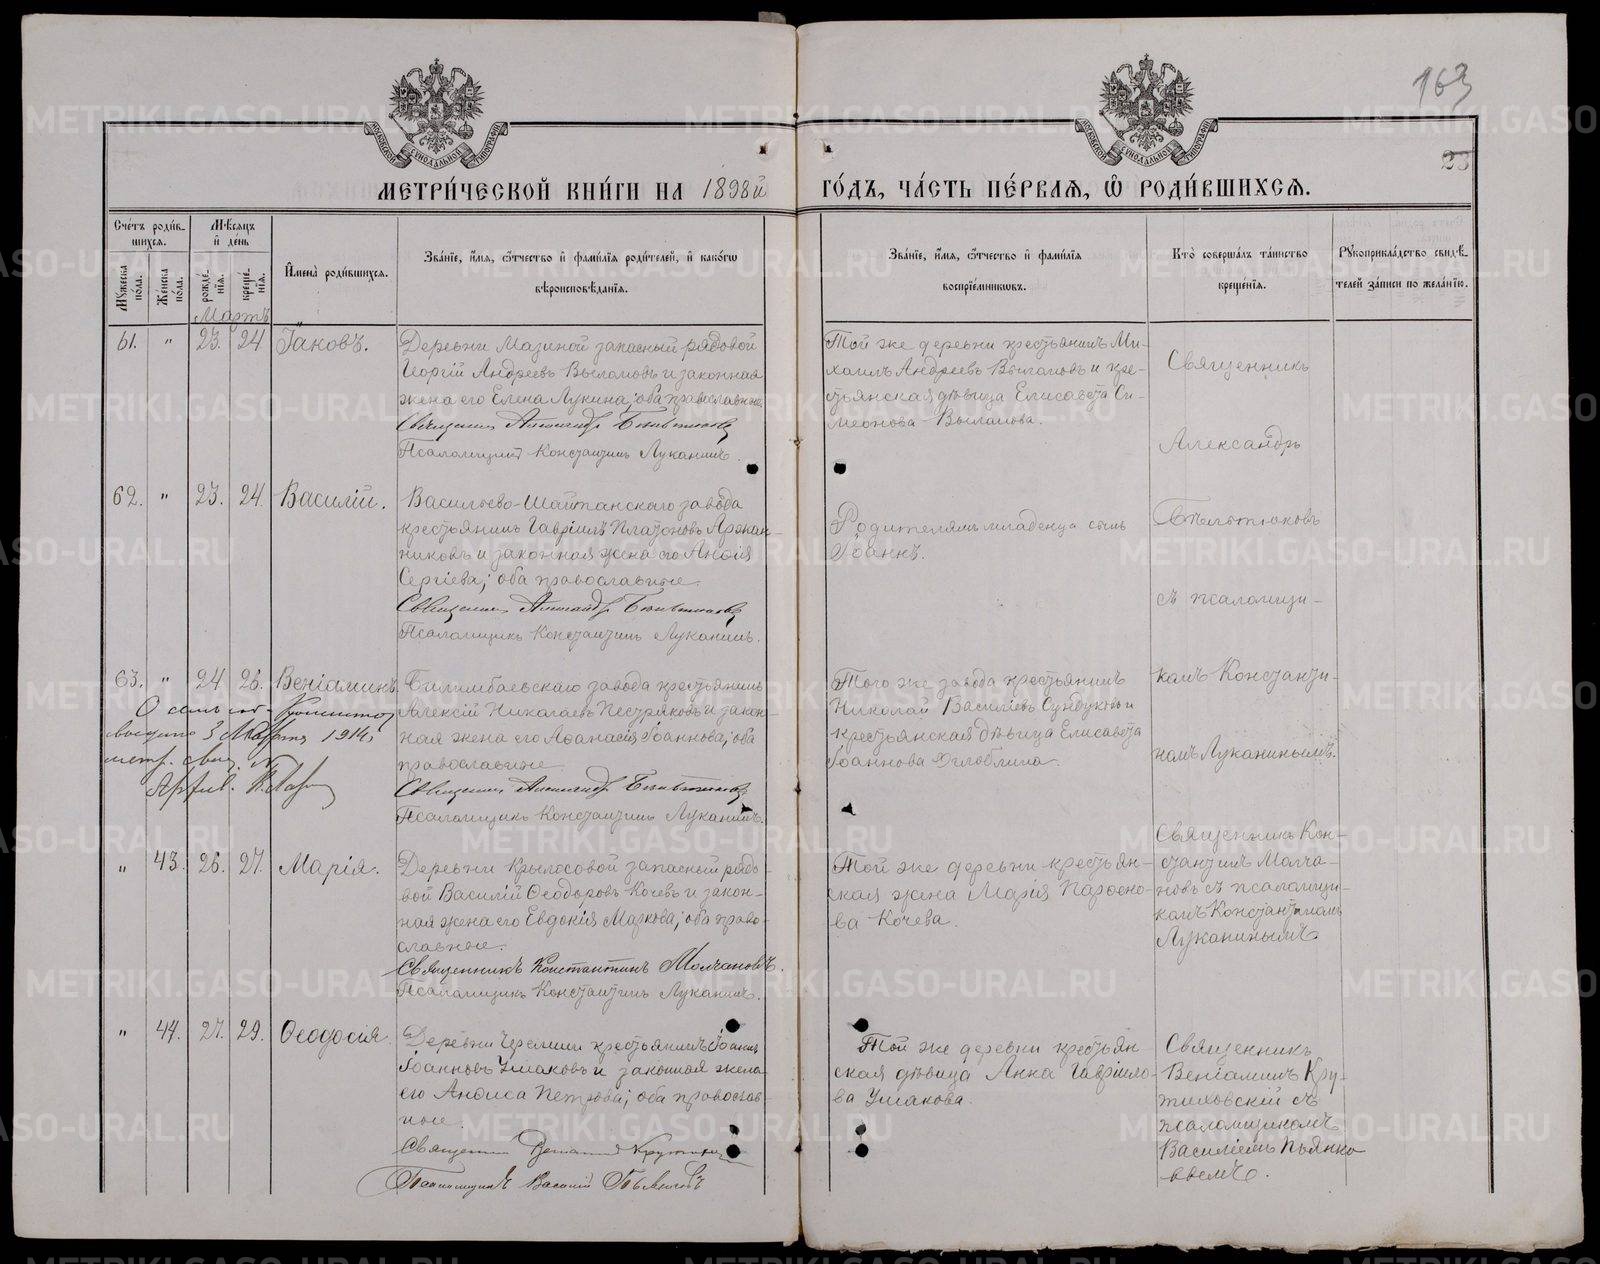 163
23
МОСКОВСКОЙ СѴНОДАЛЬНОЙ ТИПОГРАФІИ
МОСКОВСКОЙ СѴНОДАЛЬНОЙ ТИПОГРАФІИ
МЕТРИ́ЧЕСКОЙ КНИ́ГИ НА 1898й
ГО́ДЪ, ЧА́СТЬ ПЕ́РВАЯ, Ѡ РОДИ́ВШИХСЯ.
Сче́тъ роди́в-
шихся.
Мѣ́сяцъ
и де́нь
Мужеска по́ла.
Же́нска по́ла.
рожде́-
нія.
креще́-
нія.
Имена̀ роди́вшихся.
Зва́ніе, и́мя, ѻ́тчество и фами́лія роди́телей, и како́гѡ
вѣроисповѣ́данія.
Зва́ніе, и́мя, ѻ́тчество и фами́лія
воспріе́мниковъ.
Кто̀ соверша́лъ та́инство
креще́нія.
Рукоприкла́дство свидѣ́-
телей за́писи по жела́нію.
Мартъ
61. " 23. 24 Іаковъ.
Деревни Мазиной запасный рядовой
Георгій Андреевъ Выламовъ и законная
жена его Елена Лукина; оба православные.
Священникъ Александръ Бѣльтюковъ
Псаломщикъ Константинъ Луканинъ.
Той же деревни крестьянинъ Ми-
хаилъ Андреевъ Выламовъ и кре-
стьянская дѣвица Елисавета Си-
меонова Выламова.
Священникъ
Александръ
62. " 23. 24. Василій.
Васильево-Шайтанскаго завода
крестьянинъ Гавріилъ Платоновъ Аржан-
никовъ и законная жена его Анѳія
Сергіева; оба православные.
Священникъ Александръ Бѣльтюковъ
Псаломщикъ Константинъ Луканинъ.
Родителямъ младенца сынъ
Іоаннъ.
Бѣльтюковъ
съ псаломщи-
63. " 24 26. Веніаминъ.
Билимбаевскаго завода крестьянинъ
Алексій Николаевъ Пестряковъ и закон-
ная жена его Аѳанасія Іоаннова; оба
православные.
Священникъ Александръ Бѣльтюковъ
Псаломщикъ Константинъ Луканинъ.
Того же завода крестьянинъ
Николай Василіевъ Сундуковъ и
крестьянская дѣвица Елисавета
Іоаннова Оглоблина.
комъ Константи-
номъ Луканинымъ.
3 Марта 1914
метр. свид. №
" 43. 26. 27. Марія.
Деревни Крылосовой запасный рядо-
вой Василій Ѳеодоровъ Кочевъ и закон-
ная жена его Евдокія Маркова; оба право-
славные.
Священникъ Константинъ Молчановъ.
Псаломщикъ Константинъ Луканинъ.
Той же деревни крестьян-
ская жена Марія Парѳено-
ва Кочева.
Священникъ Кон-
стантинъ Молча-
новъ съ псаломщи-
комъ Константиномъ
Луканинымъ.
" 44. 27. 29. Ѳеодосія.
Деревни Черемши крестьянинъ Іоаннъ
Іоанновъ Ушаковъ и законная жена
его Анфиса Петрова; оба православ-
ные.
Священникъ Веніаминъ Крутиховскій
Псаломщикъ Василій Пьянковъ
Той же деревни крестьян-
ская дѣвица Анна Гавріило-
ва Ушакова.
Священникъ
Веніаминъ Кру-
тиховскій съ
псаломщикомъ
Василіемъ Пьянко-
вымъ.
METRIKI.GASO-URAL.RU